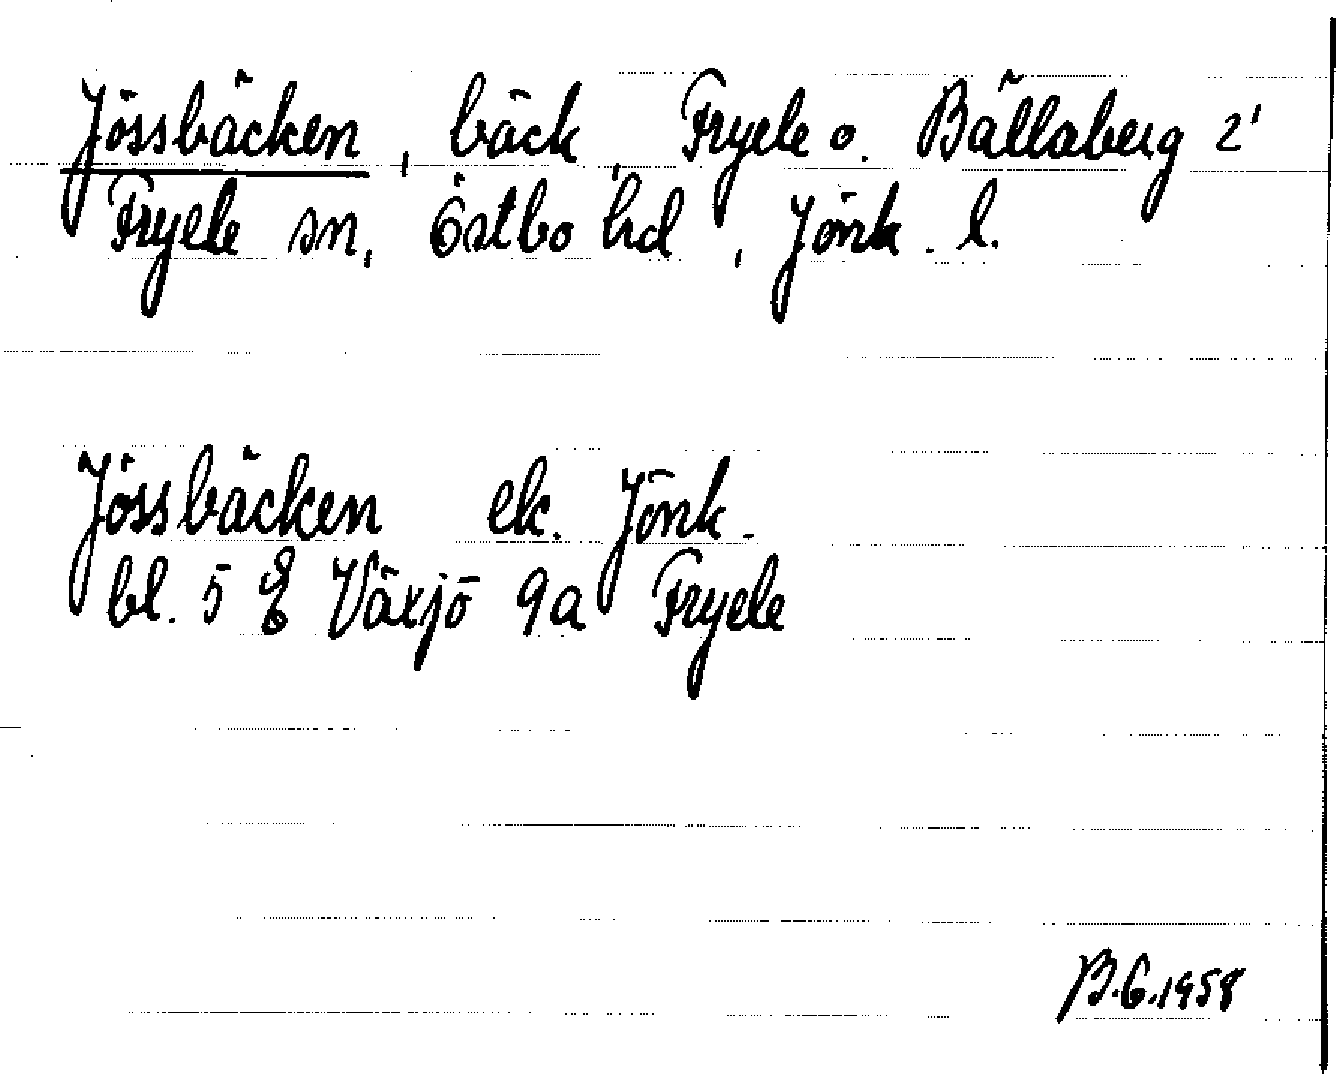 Jössbäcken, bäck, Fryele o. Bällaberg 2'
Fryele sn, Östbo hd, Jönk. l.
Jössbäcken ek. Jönk.
bl. 5 E Växjö 9a Fryele
B.G.1958